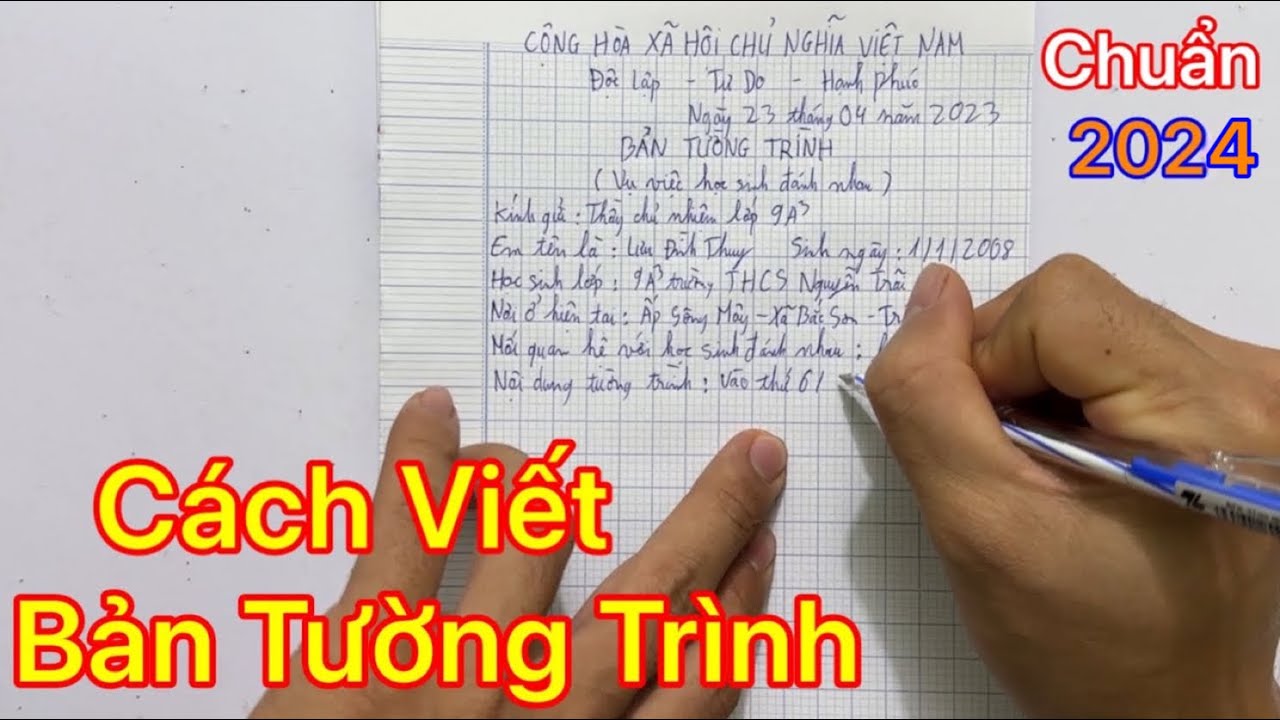 CÔNG HÒA XÃ HÔI CHỦ NGHĨA VIÊT NAM
Độc Lập - Tư Do - Hanh Phúc
Ngày 23 tháng 04 năm 2023
BẢN TƯỜNG TRÌNH
(Vụ việc học sinh đánh nhau)
Kính gửi : Thầy chủ nhiêm lớp 9A3
Em tên là : Lưu Đình Thuy Sinh ngày : 1/1/2008
Hoc sinh lớp : 9A3 trường THCS Nguyễn Trãi
Nơi ở hiên tai : Ấp Sông Mây - Xã Bắc Sơn - Tr
Mối quan hê với học sinh đánh nhau :
Nội dung tường trình : Vào thứ 6/
Chuẩn
2024
Cách Viết
Bản Tường Trình